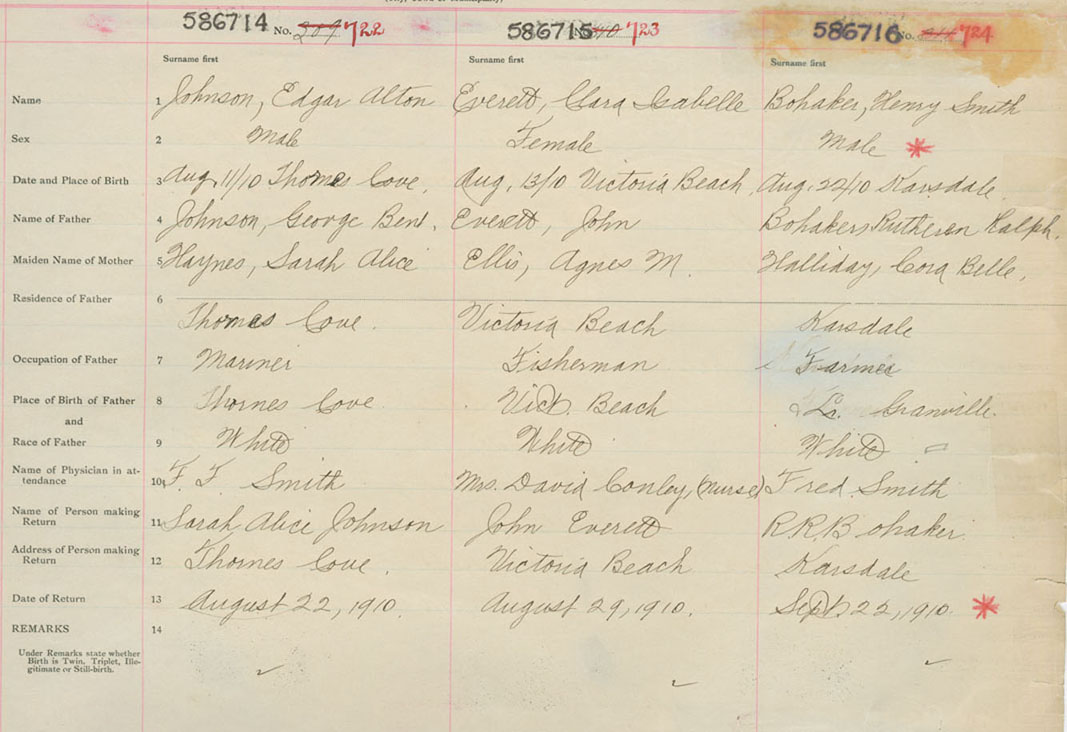 586714 No. 209 722 586715 No. 210 723 586716 No. 724
Surname first Surname first Surname first
Name 1 Johnson, Edgar Alton Everett, Clara Isabelle Bohaker, Henry Smith
Sex 2 Male Female Male *
Date and Place of Birth 3 Aug, 11/10 Thornes Cove. Aug, 13/10 Victoria Beach, Aug. 22/10 Karsdale
Name of Father 4 Johnson, George Benj. Everett, John Bohaker, Ralph.
Maiden Name of Mother 5 Haynes, Sarah Alice Ellis, Agnes M. Halliday, Cora Belle,
Residence of Father 6
Thornes Cove. Victoria Beach Karsdale
Occupation of Father 7 Mariner Fisherman Farmer
Place of Birth of Father 8 Thornes Cove Vict. Beach Lr. Granville.
and
Race of Father 9 White White White
Name of Physician in at-
tendance 10 F. F. Smith Mrs. David Conley, (nurse) Fred Smith
Name of Person making
Return 11 Sarah Alice Johnson John Everett R R Bohaker.
Address of Person making
Return 12 Thornes Cove. Victoria Beach Karsdale
Date of Return 13 August 22, 1910. August 29, 1910. Sept. 22, 1910. *
REMARKS 14
Under Remarks state whether
Birth is Twin, Triplet, Ille-
gitimate or Still-birth.